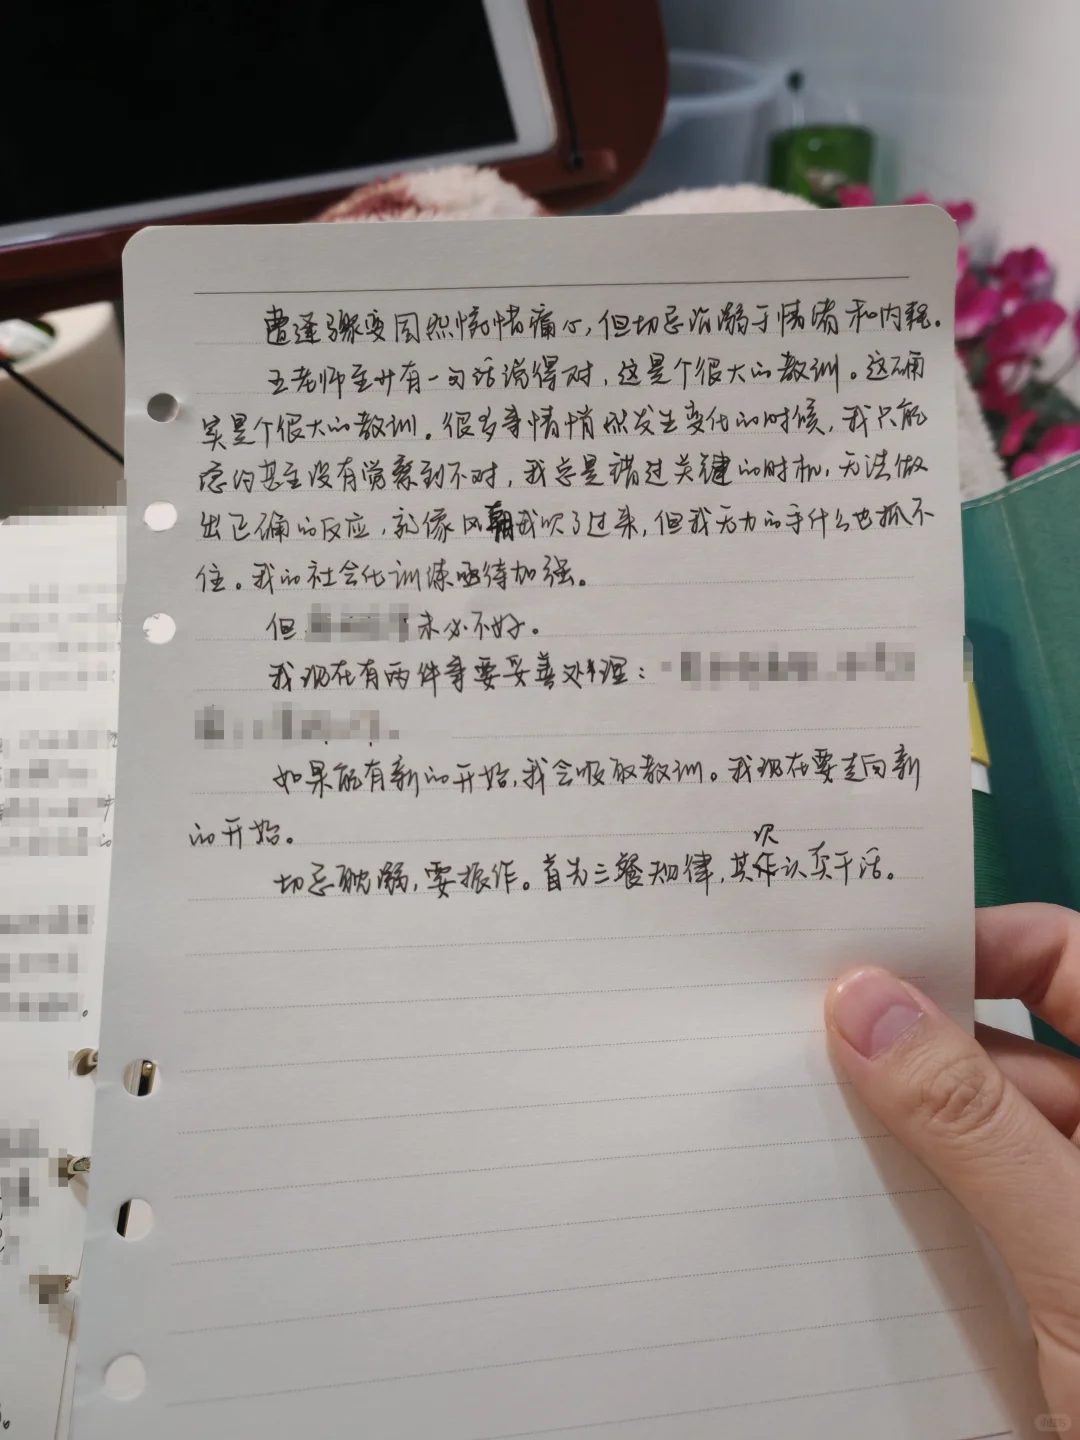 遭逢骤变固然惋惜痛心，但切忌沉溺于情绪和内耗。
王老师至少有一句话说得对，这是个很大的教训。这确
实是个很大的教训。很多事情悄然发生变化的时候，我只能
隐约甚至没有觉察到不对，我总是错过关键的时机，无法做
出正确的反应，就像风朝我吹了过来，但我无力的手什么也抓不
住。我的社会化训练亟待加强。
但 未必不好。
我现在有两件事要妥善处理：
如果能有新的开始，我会吸取教训。我现在要走向新
的开始。
切忌耽溺，要振作。首先三餐规律，其次认真干活。